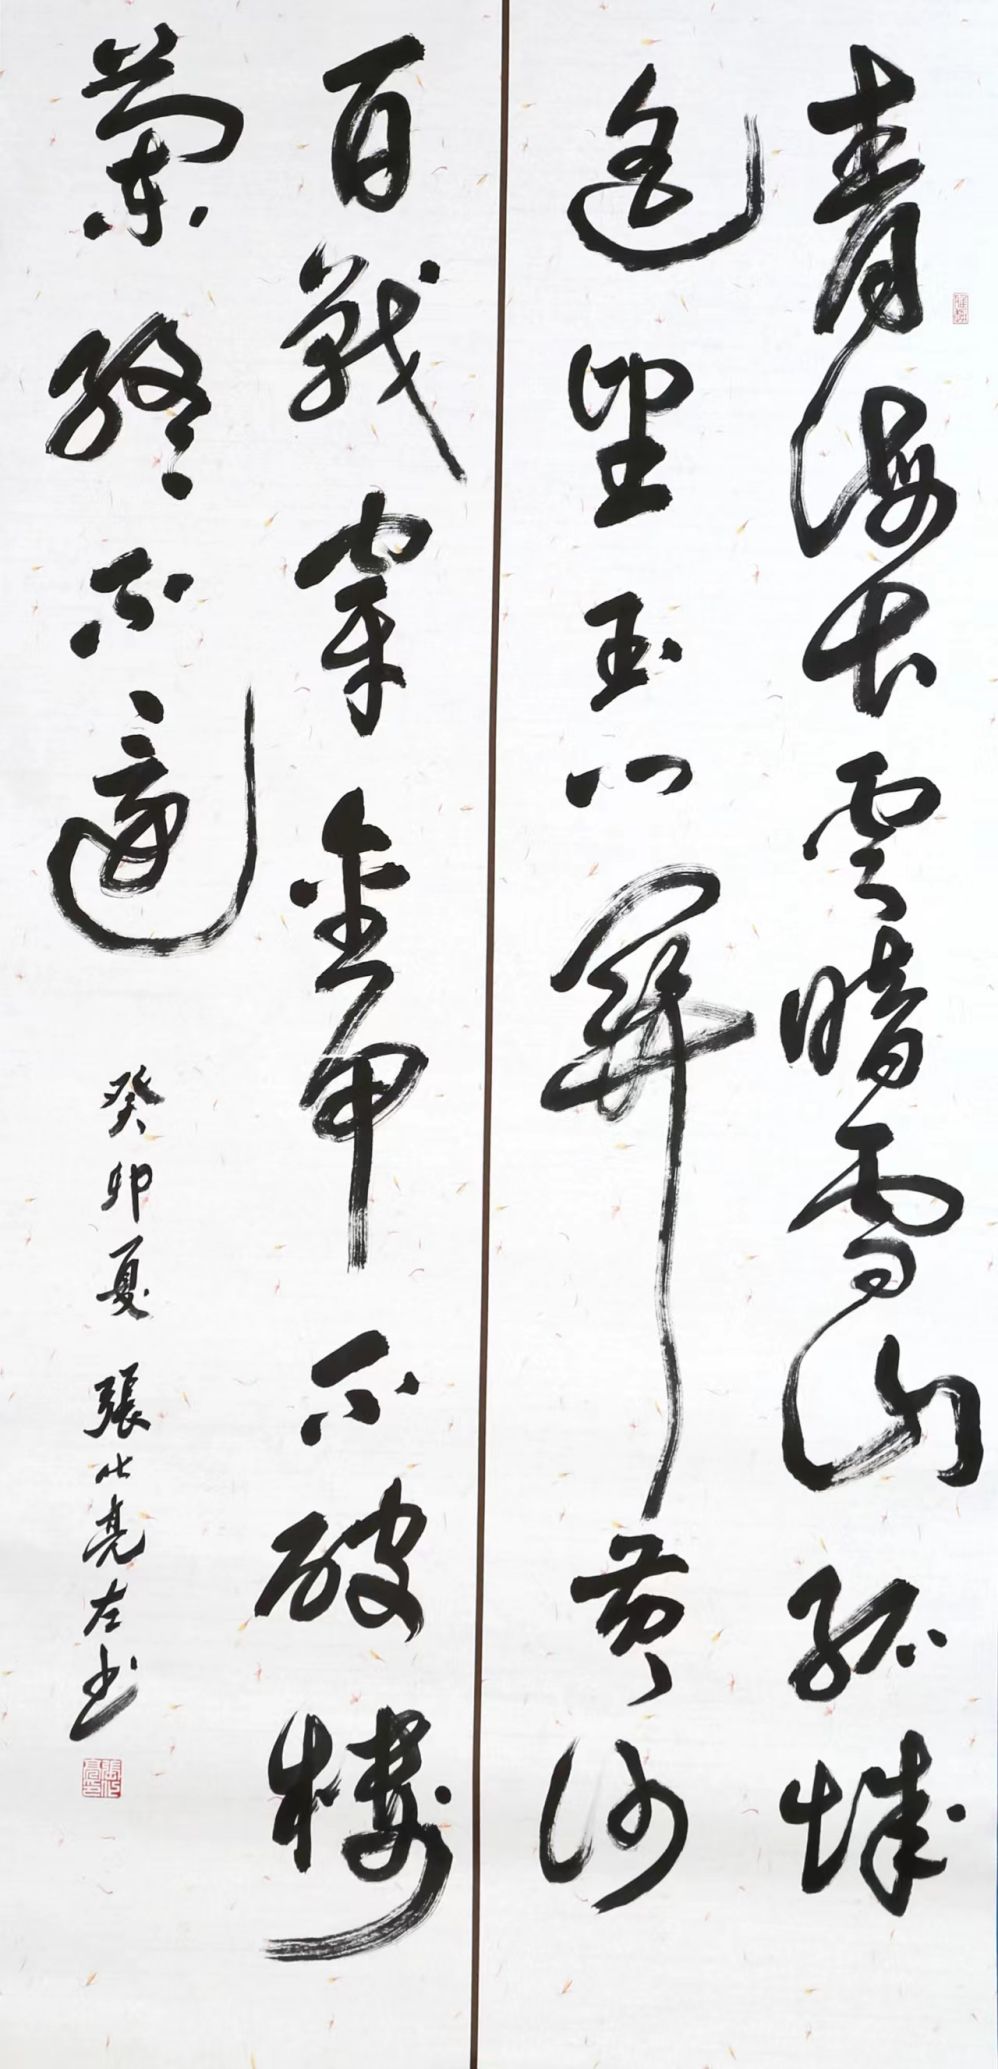 青海長雲暗雪山孤城
遙望玉門關黃沙
百戰穿金甲不破樓
蘭終不還
癸卯夏 張化亮左書
張化亮印